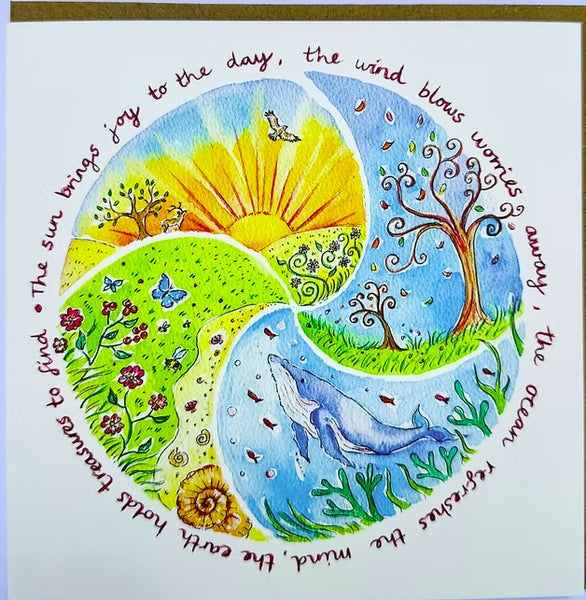 • The sun brings joy to the day, the wind blows worries away, the ocean refreshes the mind, the earth holds treasures to find